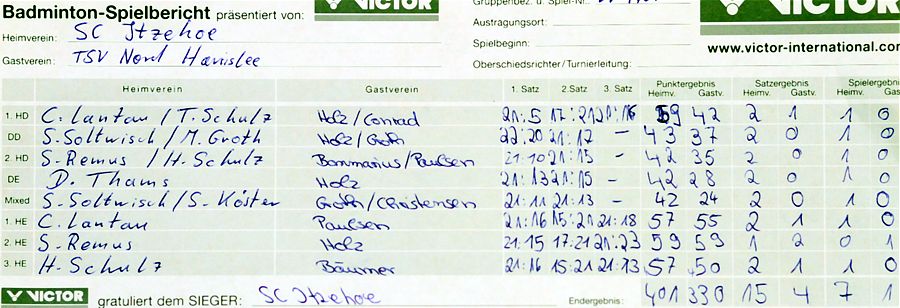 VICTOR
Badminton-Spielbericht präsentiert von:
VICTOR
Heimverein: SC Itzehoe
Austragungsort:
Gastverein: TSV Nord Harrislee
Spielbeginn:
www.victor-international.com
Oberschiedsrichter/Turnierleitung:
Heimverein Gastverein 1. Satz 2. Satz 3. Satz Punktergebnis Satzergebnis Spielergebnis
Heimv. Gastv. Heimv. Gastv. Heimv. Gas
1. HD C. Lantau / T. Schulz Holz / Conrad 21:5 17:21 21:16 59 42 2 1 1 0
DD S. Soltwisch / M. Groth Holz / Groth 22:20 21:17 – 43 37 2 0 1 0
2. HD S. Remus / H. Schulz Bommarius / Paulsen 21:10 21:15 – 42 35 2 0 1 0
DE D. Thams Holz 21:13 21:15 – 42 28 2 0 1 0
Mixed S. Soltwisch / S. Köster Groth / Christensen 21:11 21:13 – 42 24 2 0 1 0
1. HE C. Lantau Paulsen 21:16 15:21 21:18 57 55 2 1 1 0
2. HE S. Remus Holz 21:15 17:21 21:23 59 59 1 2 0 1
3. HE H. Schulz Bäumer 21:16 15:21 21:13 57 50 2 1 1 0
VICTOR gratuliert dem SIEGER: SC Itzehoe Endergebnis: 401 330 15 4 7 1